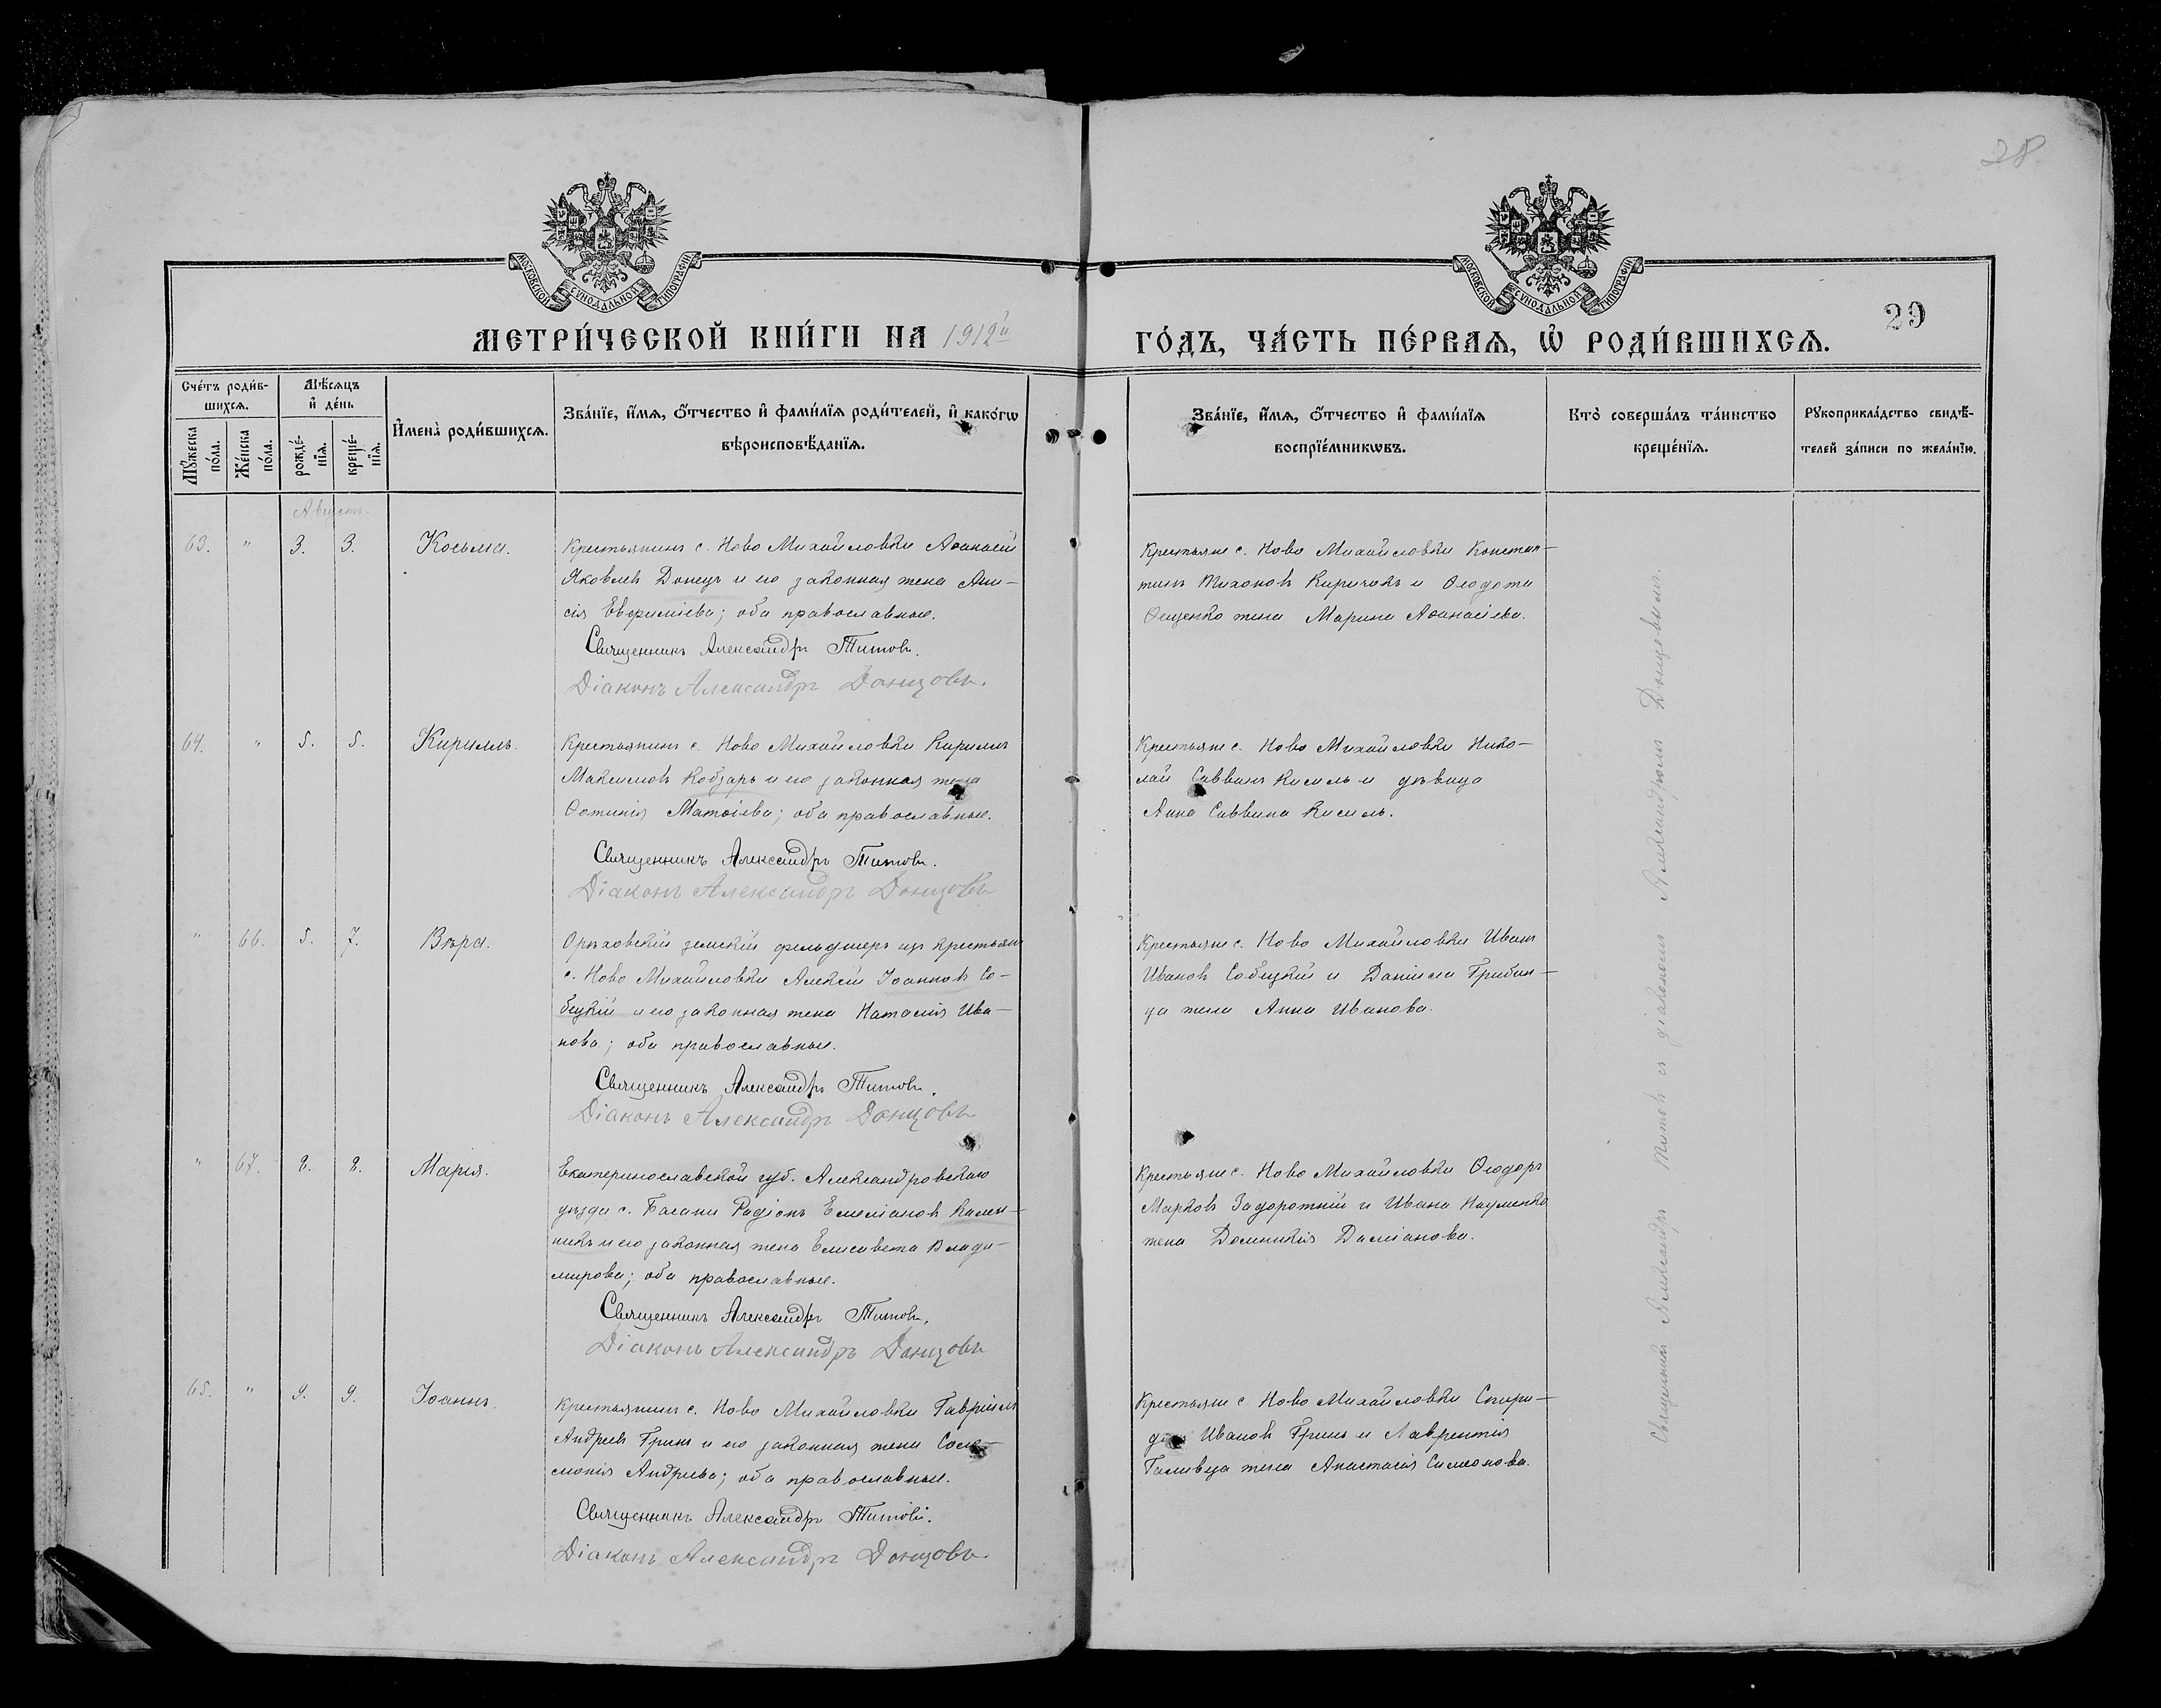 28
МОСКОВСКОЙ СѴНОДАЛЬНОЙ ТИПОГРАФІИ
МОСКОВСКОЙ СѴНОДАЛЬНОЙ ТИПОГРАФІИ
29
МЕТРИ́ЧЕСКОЙ КНИ́ГИ НА 1912й
ГО́ДЪ, ЧА́СТЬ ПЕ́РВАѦ, Ѡ҆ РОДИ́ВШИХСѦ.
Сче́тъ роди́в-
шихсѧ.
Мѣ́сѧцъ
и҆ де́нь
Мꙋ́жеска
по́ла.
Же́нска
по́ла.
рожде́-
нїѧ.
креще́-
нїѧ.
И҆мена̀ роди́вшихсѧ.
Зва́нїе, и҆́мѧ, ѻ҆́тчество и҆ фами́лїѧ роди́телей, и҆ како́гѡ
вѣроисповѣ́данїѧ.
Зва́нїе, и҆́мѧ, ѻ҆́тчество и҆ фами́лїѧ
воспрїе́мникѡвъ.
Кто̀ соверша́лъ та́инство
креще́нїѧ.
Рꙋкоприкла́дство свидѣ́-
телей за́писи по жела́нїю.
Августъ.
63. " 3. 3. Косьма.
Крестьянинъ с. Ново Михайловки Аѳанасій
Яковлевъ Донецъ и его законная жена Ани-
сія Евфиміева; оба православные.
Священникъ Александръ Титовъ.
Діаконъ Александръ Донцовъ.
Крестьяне с. Ново Михайловки Констан-
тинъ Тихоновъ Киричокъ и Ѳеодота
Ѳещенко жена Марина Аѳанасіева.
64. " 5. 5. Кириллъ.
Крестьянинъ с. Ново Михайловки Кириллъ
Максимовъ Кобзарь и его законная жена
Ѳотинія Матѳіева; оба православные.
Священникъ Александръ Титовъ.
Діаконъ Александръ Донцовъ
Крестьяне с. Ново Михайловки Нико-
лай Саввинъ Кисиль и дѣвица
Анна Саввина Кисиль.
" 66. 5. 7. Вѣра.
Орѣховскій земскій фельдшеръ изъ крестьянъ
с. Ново Михайловки Алексій Іоанновъ Со-
бецкій и его законная жена Наталія Ива-
нова; оба православные.
Священникъ Александръ Титовъ.
Діаконъ Александръ Донцовъ
Крестьяне с. Ново Михайловки Иванъ
Ивановъ Собецкій и Даніила Грибин-
ца жена Анна Иванова.
" 67. 8. 8. Марія.
Екатеринославской губ. Александровскаго
уѣзда с. Басани Радіонъ Емеліановъ Калы-
никъ и его законная жена Елисавета Влади-
мирова; оба православные.
Священникъ Александръ Титовъ.
Діаконъ Александръ Донцовъ
Крестьяне с. Ново Михайловки Ѳеодоръ
Марковъ Задорожній и Ивана Науменко
жена Домникія Даміанова.
65. " 9. 9. Іоаннъ.
Крестьянинъ с. Ново Михайловки Гавріилъ
Андреевъ Гринь и его законная жена Соло-
монія Андреева; оба православные.
Священникъ Александръ Титовъ.
Діаконъ Александръ Донцовъ.
Крестьяне с. Ново Михайловки Спири-
Ивановъ Гринь и Лаврентія
жена Анастасія Симеонова.
Священникъ Александръ Титовъ съ діакономъ Александромъ Донцовымъ.